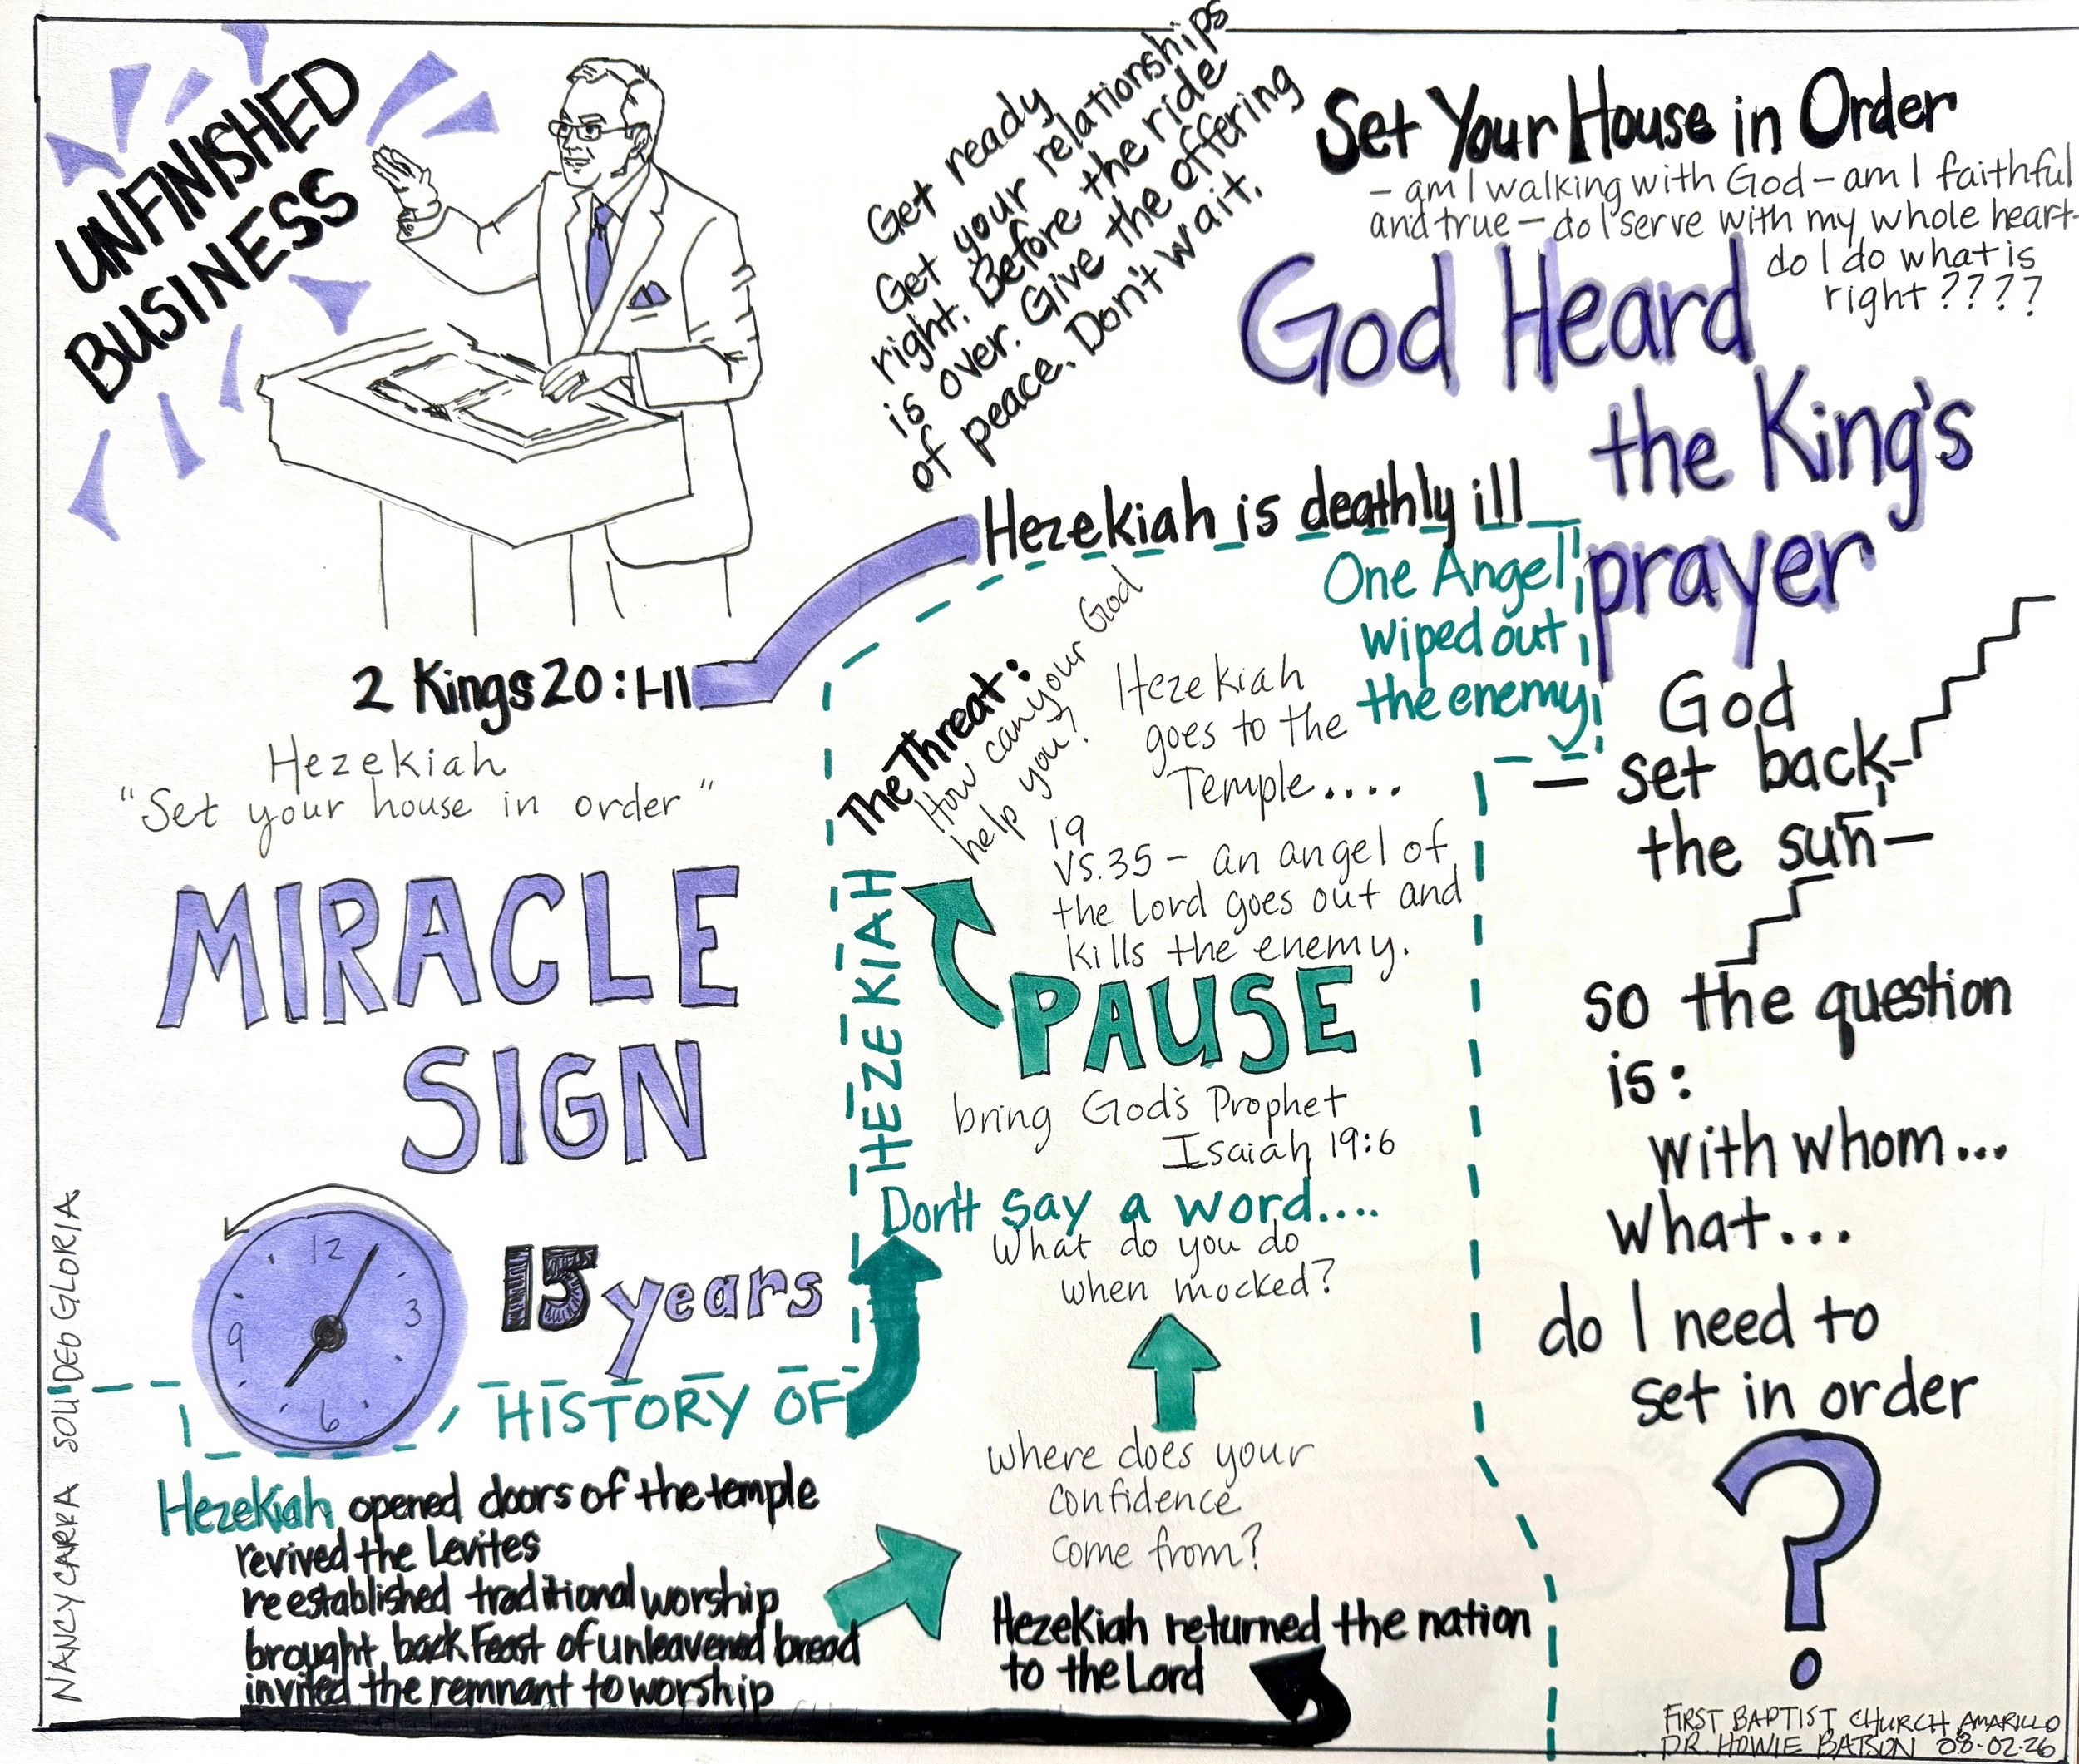 UNFINISHED
BUSINESS
Get ready
Get your relationships
right. Before the ride
is over. Give the offering
of peace. Don't wait.
Set Your House in Order
- am I walking with God - am I faithful
and true - do I serve with my whole heart -
do I do what is
right ????
God Heard
the King's
prayer
2 Kings 20:1-11
Hezekiah is deathly ill
One Angel
wiped out
the enemy!
Hezekiah
"Set your house in order"
MIRACLE
SIGN
12
3
6
9
15 years
HISTORY OF
HEZEKIAH
Hezekiah opened doors of the temple
revived the Levites
reestablished traditional worship
brought back Feast of unleavened bread
invited the remnant to worship
Hezekiah returned the nation
to the Lord
Where does your
confidence
come from?
What do you do
when mocked?
Don't say a word....
bring God's Prophet
Isaiah 19:6
PAUSE
The Threat:
How can your God
help you?
Hezekiah
goes to the
Temple....
19
vs.35 - an angel of
the Lord goes out and
kills the enemy.
God
- set back
the sun -
so the question
is:
with whom...
what...
do I need to
set in order
?
NANCY CARRA SOLI DEO GLORIA
FIRST BAPTIST CHURCH AMARILLO
DR. HOWIE BATSON 08-02-26